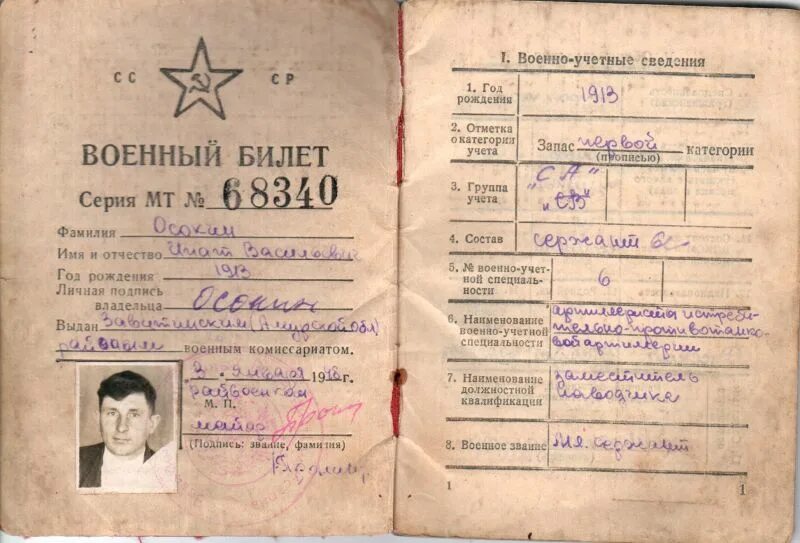 СС СР
ВОЕННЫЙ БИЛЕТ
Серия МТ № 68340
Фамилия Осокин
Имя и отчество Игнат Васильевич
Год рождения 1913
Личная подпись
владельца Осокин
Выдан Завитинским (Амурской обл)
райвоен военным комиссариатом.
3. января 1948 г.
райвоенком
М. П.
майор
(Подпись: звание, фамилия)
I. Военно-учетные сведения
1. Год
рождения 1913
2. Отметка
о категории
учета Запас первой категории
(прописью)
3. Группа
учета "СА"
"СВ"
4. Состав сержант
5. № военно-учет-
ной специаль-
ности 6
6. Наименование
военно-учетной
специальности артиллериста истреби-
тельно-противотанко-
вой артиллерии
7. Наименование
должностной
квалификации заместитель
наводчика
8. Военное звание Мл. сержант
1 1